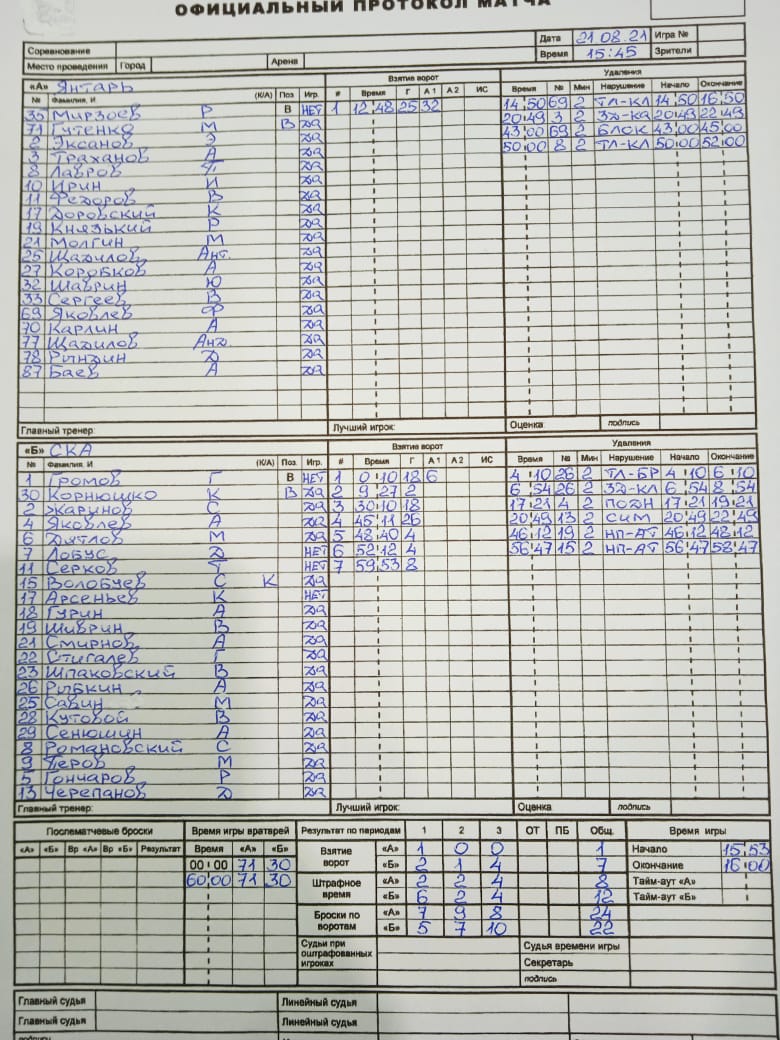 ОФИЦИАЛЬНЫЙ ПРОТОКОЛ МАТЧА
Соревнование Дата 21 08.21 Игра №
Место проведения Город Арена Время 15:45 Зрители
«А» Янтарь Взятие ворот Удаления
№ Фамилия, И (К/А) Поз Игр. # Время Г А1 А2 ИС Время № Мин Нарушение Начало Окончание
35 Мирзоев Р В НЕТ 1 12 48 25 32 14 50 69 2 ТЛ-КЛ 14 50 16 50
71 Гутенко М В ДА 20 49 3 2 ЗД-КА 20 49 22 49
2 Эксанов Э ДА 43 00 69 2 БЛОК 43 00 45 00
3 Траханов А ДА 50 00 8 2 ТЛ-КЛ 50 00 52 00
8 Лавров П ДА
10 Ирин И ДА
11 Федоров В ДА
17 Доровский К ДА
19 Князький Р ДА
21 Молгин М ДА
25 Щадилов Ант. ДА
27 Коробков А ДА
32 Шаврин Ю ДА
33 Сергеев В ДА
69 Яковлев Ф ДА
70 Карлин А ДА
77 Щадилов Анд. ДА
78 Рындин Д ДА
87 Баев А ДА
Главный тренер: Лучший игрок: Оценка подпись
«Б» СКА Взятие ворот Удаления
№ Фамилия, И (К/А) Поз Игр. # Время Г А1 А2 ИС Время № Мин Нарушение Начало Окончание
1 Громов Г В НЕТ 1 0 10 18 6 4 10 26 2 ТЛ-БР 4 10 6 10
30 Корнюшко К В ДА 2 9 27 2 6 54 26 2 ЗД-КЛ 6 54 8 54
2 Жаринов С ДА 3 30 10 18 17 21 4 2 ПОДН 17 21 19 21
4 Яковлев А ДА 4 45 11 26 20 49 13 2 СИМ 20 49 22 49
6 Дятлов М ДА 5 48 40 4 46 12 19 2 НП-АТ 46 12 48 12
7 Лобус Д НЕТ 6 52 12 4 56 47 15 2 НП-АТ 56 47 58 47
11 Серков Т НЕТ 7 59 53 8
15 Волобуев С К ДА
17 Арсеньев К НЕТ
18 Гурин А ДА
19 Шиврин В ДА
21 Смирнов А ДА
22 Стигалев Г ДА
23 Шпаковский В ДА
26 Рыбкин А ДА
25 Савин М ДА
28 Кутовой В ДА
29 Сенюшин А ДА
8 Романовский С ДА
9 Перов М ДА
5 Гончаров Р ДА
13 Черепанов Д ДА
Главный тренер: Лучший игрок: Оценка подпись
Послематчевые броски Время игры вратарей Результат по периодам 1 2 3 ОТ ПБ Общ. Время игры
«А» «Б» Вр «А» Вр «Б» Результат Время «А» «Б» Взятие ворот «А» 1 0 0 1 Начало 15 53
00 00 71 30 «Б» 2 1 4 7 Окончание 16 00
60 00 71 30 Штрафное время «А» 2 2 4 8 Тайм-аут «А»
«Б» 6 2 4 12 Тайм-аут «Б»
Броски по воротам «А» 7 9 8 24
«Б» 5 7 10 22
Судьи при оштрафованных игроках Судья времени игры
Секретарь
подпись
Главный судья Линейный судья
Главный судья Линейный судья